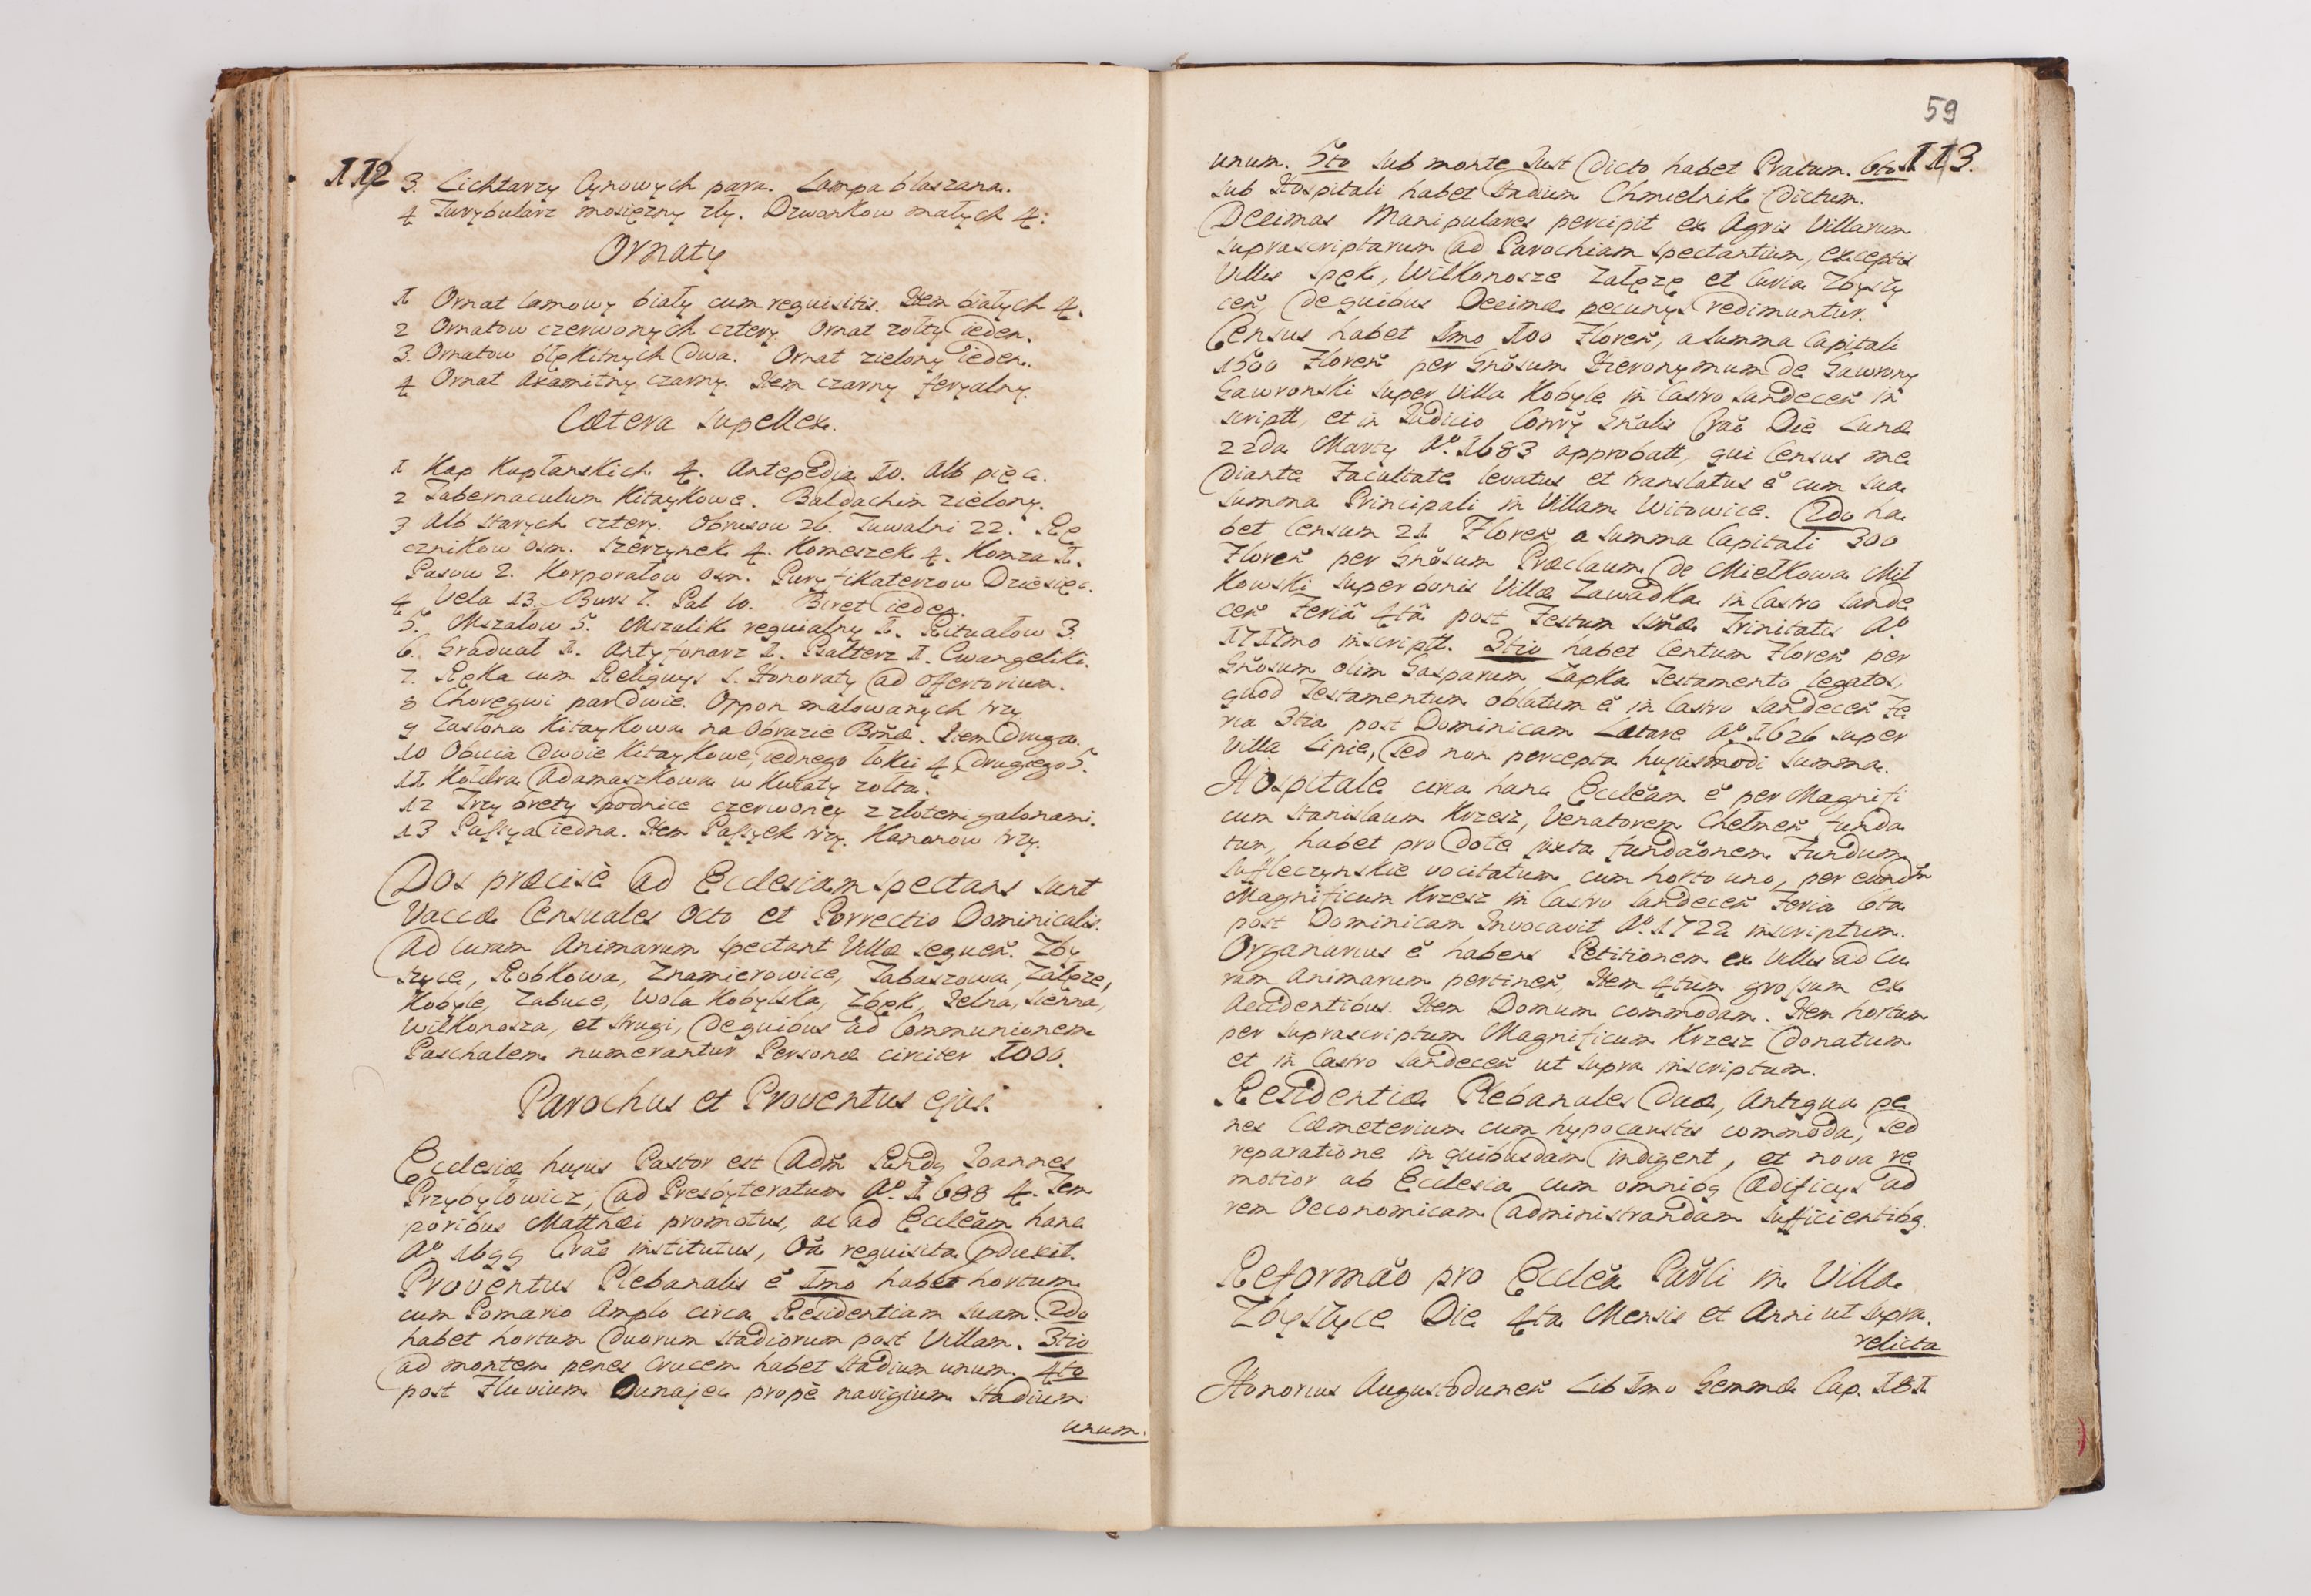 112
3. Lichtarzy Cynowych para. Lampa blaszana.
4 Turybularz mosiężny zły. Dzwonkow małych 4.
Ornaty
1 Ornat lamowy biały cum requisitis. Item białych 4.
2 Ornatow czerwonych cztery. Ornat zołty ieden.
3. Ornatow błękitnych dwa. Ornat zielony ieden.
4 Ornat Axamitny czarny. Item czarny feryalny.
Cætera Supellex.
1 Kap Kapłanskich 4. Antepedia 10. Alb pięc.
2 Tabernaculum Kitaykowe. Baldachin zielony.
3 Alb starych cztery. Obrusow 26. Tuwalni 22. Rę
cznikow osm. Szerzynek 4. Komeszek 4. Komza 1.
Pasow 2. Korporałow osm. Puryfikaterzow Dziesięc.
4 Vela 13. Burs 7. Pal 10. Biret ieden.
5. Mszałow 5. Mszalik requialny 1. Rituałow 3.
6. Graduał 1. Antyfonarz 1. Psalterz 1. Ewangeliki.
7. Ręka cum Reliquys S. Honoraty ad offertorium.
8 Choregwi par dwie. Oppon malowanych trzy
9 Zasłona Kitaykowa na Obrazie Bm̃æ. Item druga.
10 Obicia dwoie Kitaykowe, iednego łokci 4, drugiego 5.
11 Kołdra Adamaszkowa w Kwiaty zołta.
12 Trzy brety Spodnice czerwoney z złotemi galonami.
13 Passya iedna. Item Passyek trzy. Kanonow trzy.
Dos præcisè ad Ecclesiam spectans sunt
Vaccæ Censuales Octo et Porrectio Dominicalis.
Ad Curam Animarum spectant Villæ sequen̄. Zby
szyce, Robkowa, Znamierowice, Tabaszowa, Załęze,
Kobyle, Zabuce, Wola Kobylska, Zbęk, Jelna, Sienna,
Wilkonosza, et Strugi, de quibus ad Communionem
Paschalem numerantur Personæ circiter 1000.
Parochus et Proventus ejus.
Ecclesiæ hujus Pastor est Adm̃ Rnd9 Joannes
Przybyłowicz, ad Presbyteratum Aº. 1688 4. Tem
poribus Matthæi promotus, ac ad Eccleãm hanc
Aº. 1699 Crãe institutus, Oã requisita pduxit.
Proventus Plebanalis ẽ 1mo habet hortum
cum Pomario Amplo circa Residentiam suam. 2do
habet hortum duorum Stadiorum post Villam. 3tio
ad montem penes Crucem habet Stadium unum. 4to
post Fluvium Dunajec propè navigium Stadium
unum.
59
113.
unum. 5to sub monte Just dicto habet Pratum. 6to
sub Hospitali habet Stadium Chmielnik dictum.
Decimas Manipulares percipit ex Agris Villarum
suprascriptarum ad Parochiam spectantium, exceptis
Villis Zbęk, Wilkonosze Załęze et Curia Zbyszy
cen̄, de quibus Decimæ pecunys redimuntur.
Census habet 1mo 100 Floren̄, a Summa Capitali
1500 Floren̄ per Gnõsum Hieronymum de Gawrony
Gawronski super Villa Kobyle in Castro Sandecen̄ in
scriptt, et in Judicio Conry Gnãlis Crãe Die Lunæ
22da Marty Aº. 1683 approbatt, qui Census me
diante Facultate levatus et translatus ẽ cum sua
Summa Principali in Villam Witowice. 2do ha
bet Censum 21 Floren̄ a Summa Capitali 300
Floren̄ per Gnõsum Præclaum de Miełkowa Mił
kowski super bonis Villæ Zawadka in Castro Sande
cen̄ Feriâ 4tâ post Festum Smæ Trinitatis Aº
1711mo inscriptt. 3tio habet Centum Floren̄ per
Gnõsum olim Gasparum Łapka Testamento legatos,
quod Testamentum oblatum ẽ in Castro Sandecen̄ Fe
ria 3tia post Dominicam Lætare Aº. 1626 super
Villa Lipie, sed non percepta hujusmodi Summa.
Hospitale circa hanc Eccleãm ẽ per Magnifi
cum Stanislaum Krzesz, Venatorem Chełmen̄ funda
tum, habet pro dote juxta fundaõnem Fundum
Suffleczynskie vocitatum cum horto uno, per eundm̃
Magnificum Krzesz in Castro Sandecen̄ Feria 6ta
post Dominicam Invocavit Aº. 1722 inscriptum.
Organarius ẽ habens Petitionem ex Villis ad Cu
ram Animarum pertinen̄, Item 4tum grossum ex
Accidentibus. Item Domum commodam. Item hortum
per suprascriptum Magnificum Krzesz donatum
et in Castro Sandecen̄ ut supra inscriptum.
Residentiæ Plebanales duæ, Antiqua pe
nes Cæmeterium cum hypocaustis commoda, sed
reparatione in quibusdam indigent, et nova re
motior ab Ecclesia cum omnib9 Ædificys ad
rem Oeconomicam administrandam sufficientib9.
Reformão pro Ecclẽa Parl̃i in Villa
Zbyszyce Die 4ta Mensis et Anni ut supra.
relicta
Honorius Augustodunen̄ Lib 1mo Gemmæ Cap. 181